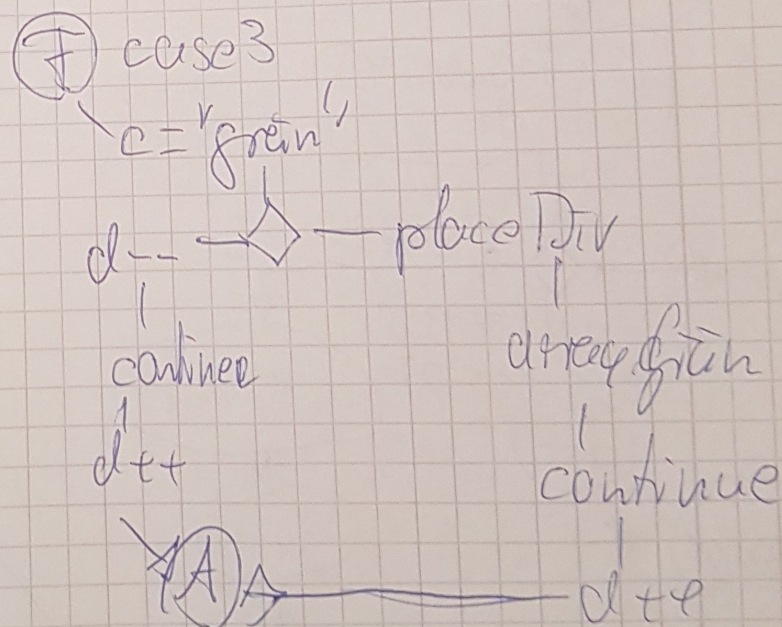 F case3
c="grün"
d-- placeDiv
continue
array grün
d++
continue
A d++